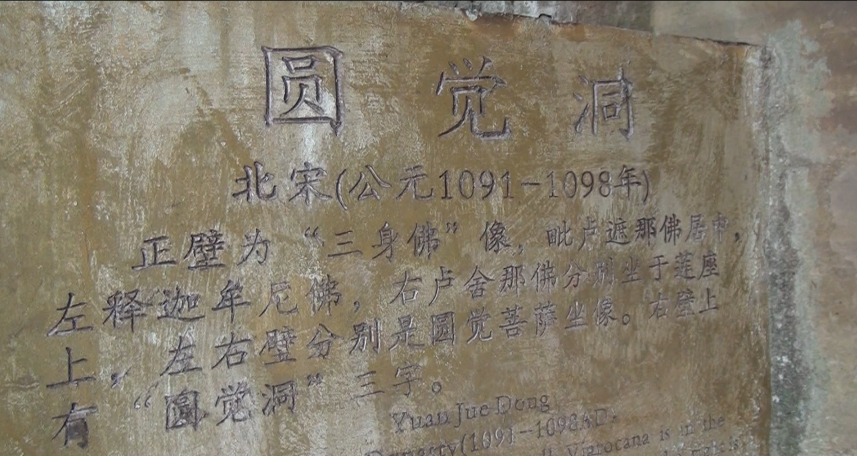 圆觉洞
北宋(公元1091-1098年)
正壁为“三身佛”像，毗卢遮那佛居中，
左释迦牟尼佛，右卢舍那佛分别坐于莲座
上，左右壁分别是圆觉菩萨坐像。右壁上
有“圆觉洞”三字。
Yuan Jue Dong
Dynasty(1091-1098AD
is in the